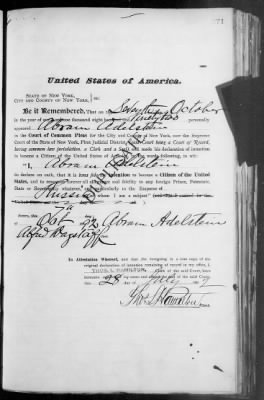 United States of America.
STATE OF NEW YORK,
CITY AND COUNTY OF NEW YORK, } ss.:
Be it Remembered, That on the Seventh October
in the year of our Lord one thousand eight hundred and Ninety two personally
appeared Abram Adelstein
in the Court of Common Pleas for the City and County of New York,
Court of the State of New York, First Judicial District, said Court being a Court of Record,
having common law jurisdiction, a Clerk and a Seal, and made his declaration of intention
to become a Citizen of the United States of America, in the words following, to wit:
"I, Abram Adelstein
do declare on oath, that it is bona fide my intention to become a Citizen of the United
States, and to renounce forever all allegiance and fidelity to any foreign Prince, Potentate,
State or Sovereignty whatever, and particularly to the Emperor of
Russia of whom I am a subject."
Sworn, this 7th
day of Oct 1892 Abram Adelstein
Alfred Wagstaff
In Attestation Whereof, and that the foregoing is a true copy of the
original declaration of intention remaining of record in my office, I
THOS. L. HAMILTON, Clerk of the said Court, have
this 28 day of July
Thos L Hamilton